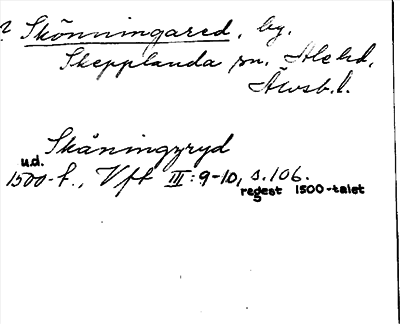 Skönningared, by.
Skepplanda sn. Ale hd,
Älvsb. l.
Skåningzryd
u.d.
1500-t., Vft III: 9-10, s. 106.
regest 1500-talet